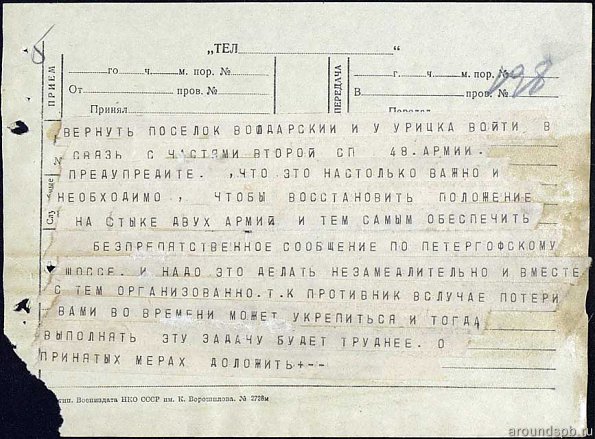 „ТЕЛ “
ПРИЕМ
го ч. м. пор. №
От пров. №
Принял
ПЕРЕДАЧА
г. ч. м. пор. №
В пров. №
198
ВЕРНУТЬ ПОСЕЛОК ВОЛДАРСКИЙ И У УРИЦКА ВОЙТИ В
СВЯЗЬ С ЧАСТЯМИ ВТОРОЙ СП 48. АРМИИ.
ПРЕДУПРЕДИТЕ. ,ЧТО ЭТО НАСТОЛЬКО ВАЖНО И
НЕОБХОДИМО , ЧТОБЫ ВОССТАНОВИТЬ ПОЛОЖЕНИЕ
НА СТЫКЕ ДВУХ АРМИЙ И ТЕМ САМЫМ ОБЕСПЕЧИТЬ
БЕЗПРЕПЯТСТВЕННОЕ СООБЩЕНИЕ ПО ПЕТЕРГОФСКОМУ
ШОССЕ. И НАДО ЭТО ДЕЛАТЬ НЕЗАМЕДЛИТЕЛЬНО И ВМЕСТЕ
С ТЕМ ОРГАНИЗОВАННО.Т.К ПРОТИВНИК ВСЛУЧАЕ ПОТЕРИ
ВАМИ ВО ВРЕМЕНИ МОЖЕТ УКРЕПИТЬСЯ И ТОГДА
ВЫПОЛНЯТЬ ЭТУ ЗАДАЧУ БУДЕТ ТРУДНЕЕ. О
ПРИНЯТЫХ МЕРАХ ДОЛОЖИТЬ+--
Воениздата НКО СССР им. К. Ворошилова. № 2728м
aroundspb.ru